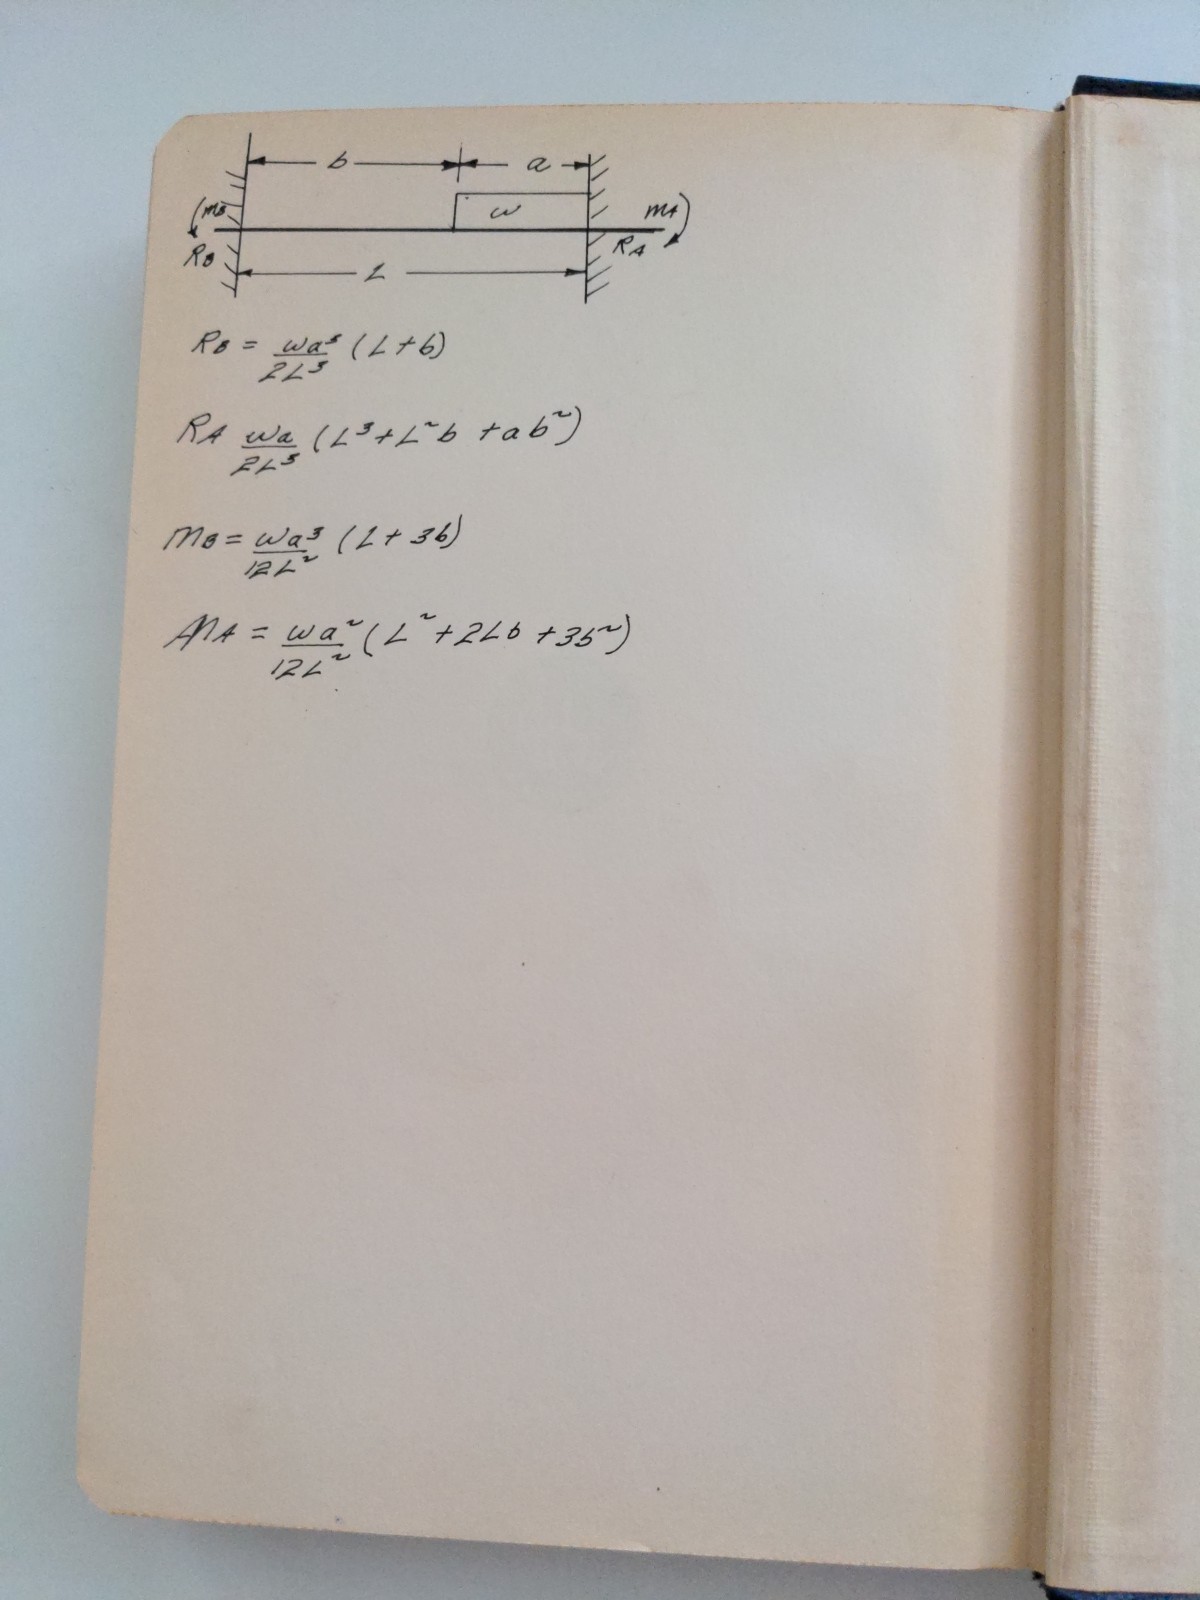 b a
MB w MA
RB RA
L
RB = wa³/2L³ (L+b)
RA wa/2L³ (L³+L²b +ab²)
MB = wa³/12L² (L+3b)
MA = wa²/12L² (L²+2Lb+3b²)